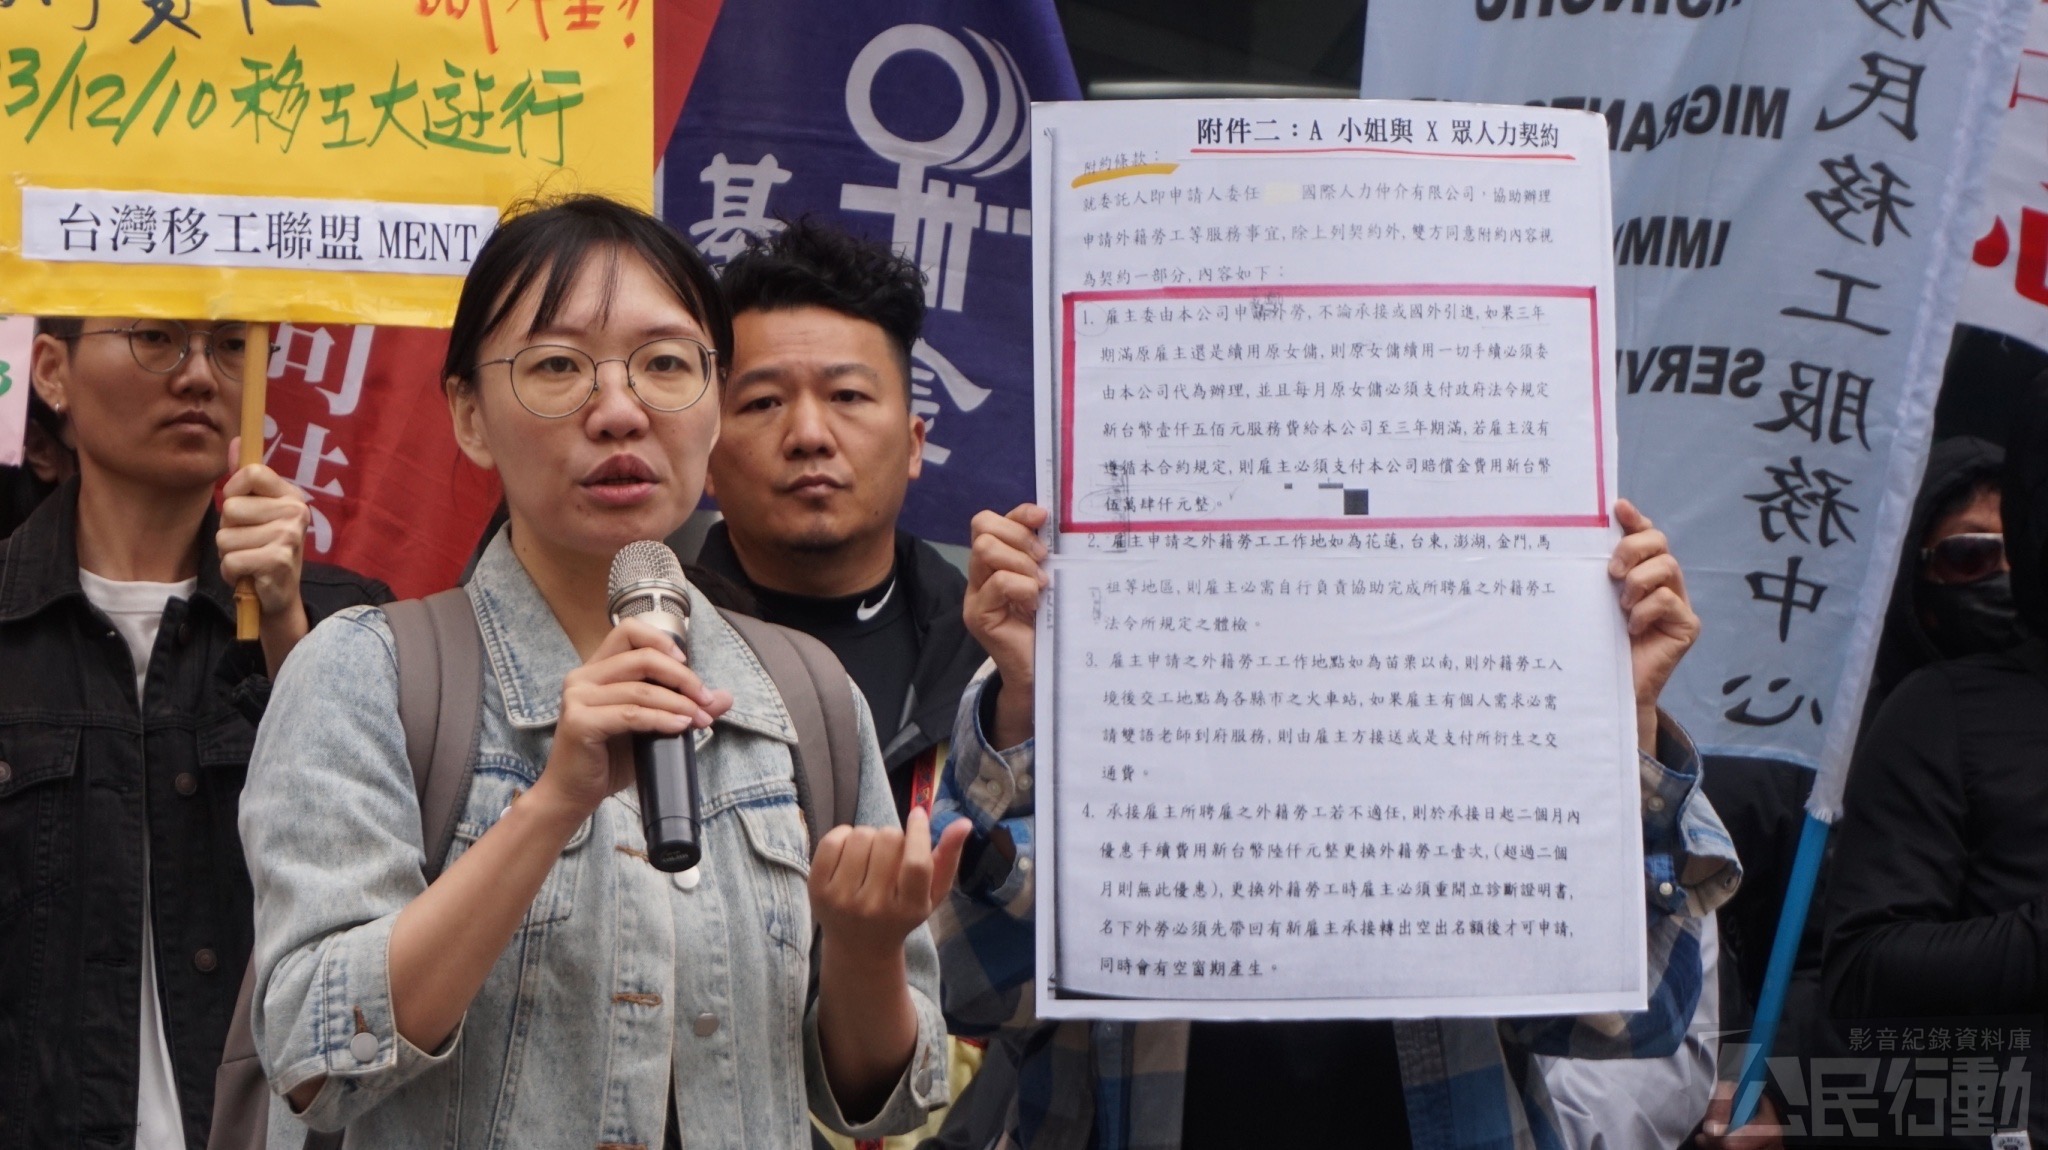 3/12/10 移工大遊行
台灣移工聯盟 MENT
司法
基
金
附件二：A 小姐與 X 眾人力契約
附約條款：
就委託人即申請人委任 國際人力仲介有限公司，協助辦理
申請外籍勞工等服務事宜,除上列契約外,雙方同意附約內容視
為契約一部分,內容如下：
1. 雇主委由本公司申請外勞,不論承接或國外引進,如果三年
期滿原雇主還是續用原女傭,則原女傭續用一切手續必須委
由本公司代為辦理,並且每月原女傭必須支付政府法令規定
新台幣壹仟五佰元服務費給本公司至三年期滿,若雇主沒有
遵循本合約規定,則雇主必須支付本公司賠償金費用新台幣
伍萬肆仟元整。
2. 雇主申請之外籍勞工工作地如為花蓮,台東,澎湖,金門,馬
祖等地區,則雇主必需自行負責協助完成所聘雇之外籍勞工
法令所規定之體檢。
3. 雇主申請之外籍勞工工作地點如為苗栗以南,則外籍勞工入
境後交工地點為各縣市之火車站,如果雇主有個人需求必需
請雙語老師到府服務,則由雇主方接送或是支付所衍生之交
通費。
4. 承接雇主所聘雇之外籍勞工若不適任,則於承接日起二個月內
優惠手續費用新台幣陸仟元整更換外籍勞工壹次,(超過二個
月則無此優惠),更換外籍勞工時雇主必須重開立診斷證明書,
名下外勞必須先帶回有新雇主承接轉出空出名額後才可申請,
同時會有空窗期產生。
移民移工服務中心
MIGRAN
IMM
SERV
影音紀錄資料庫
公民行動